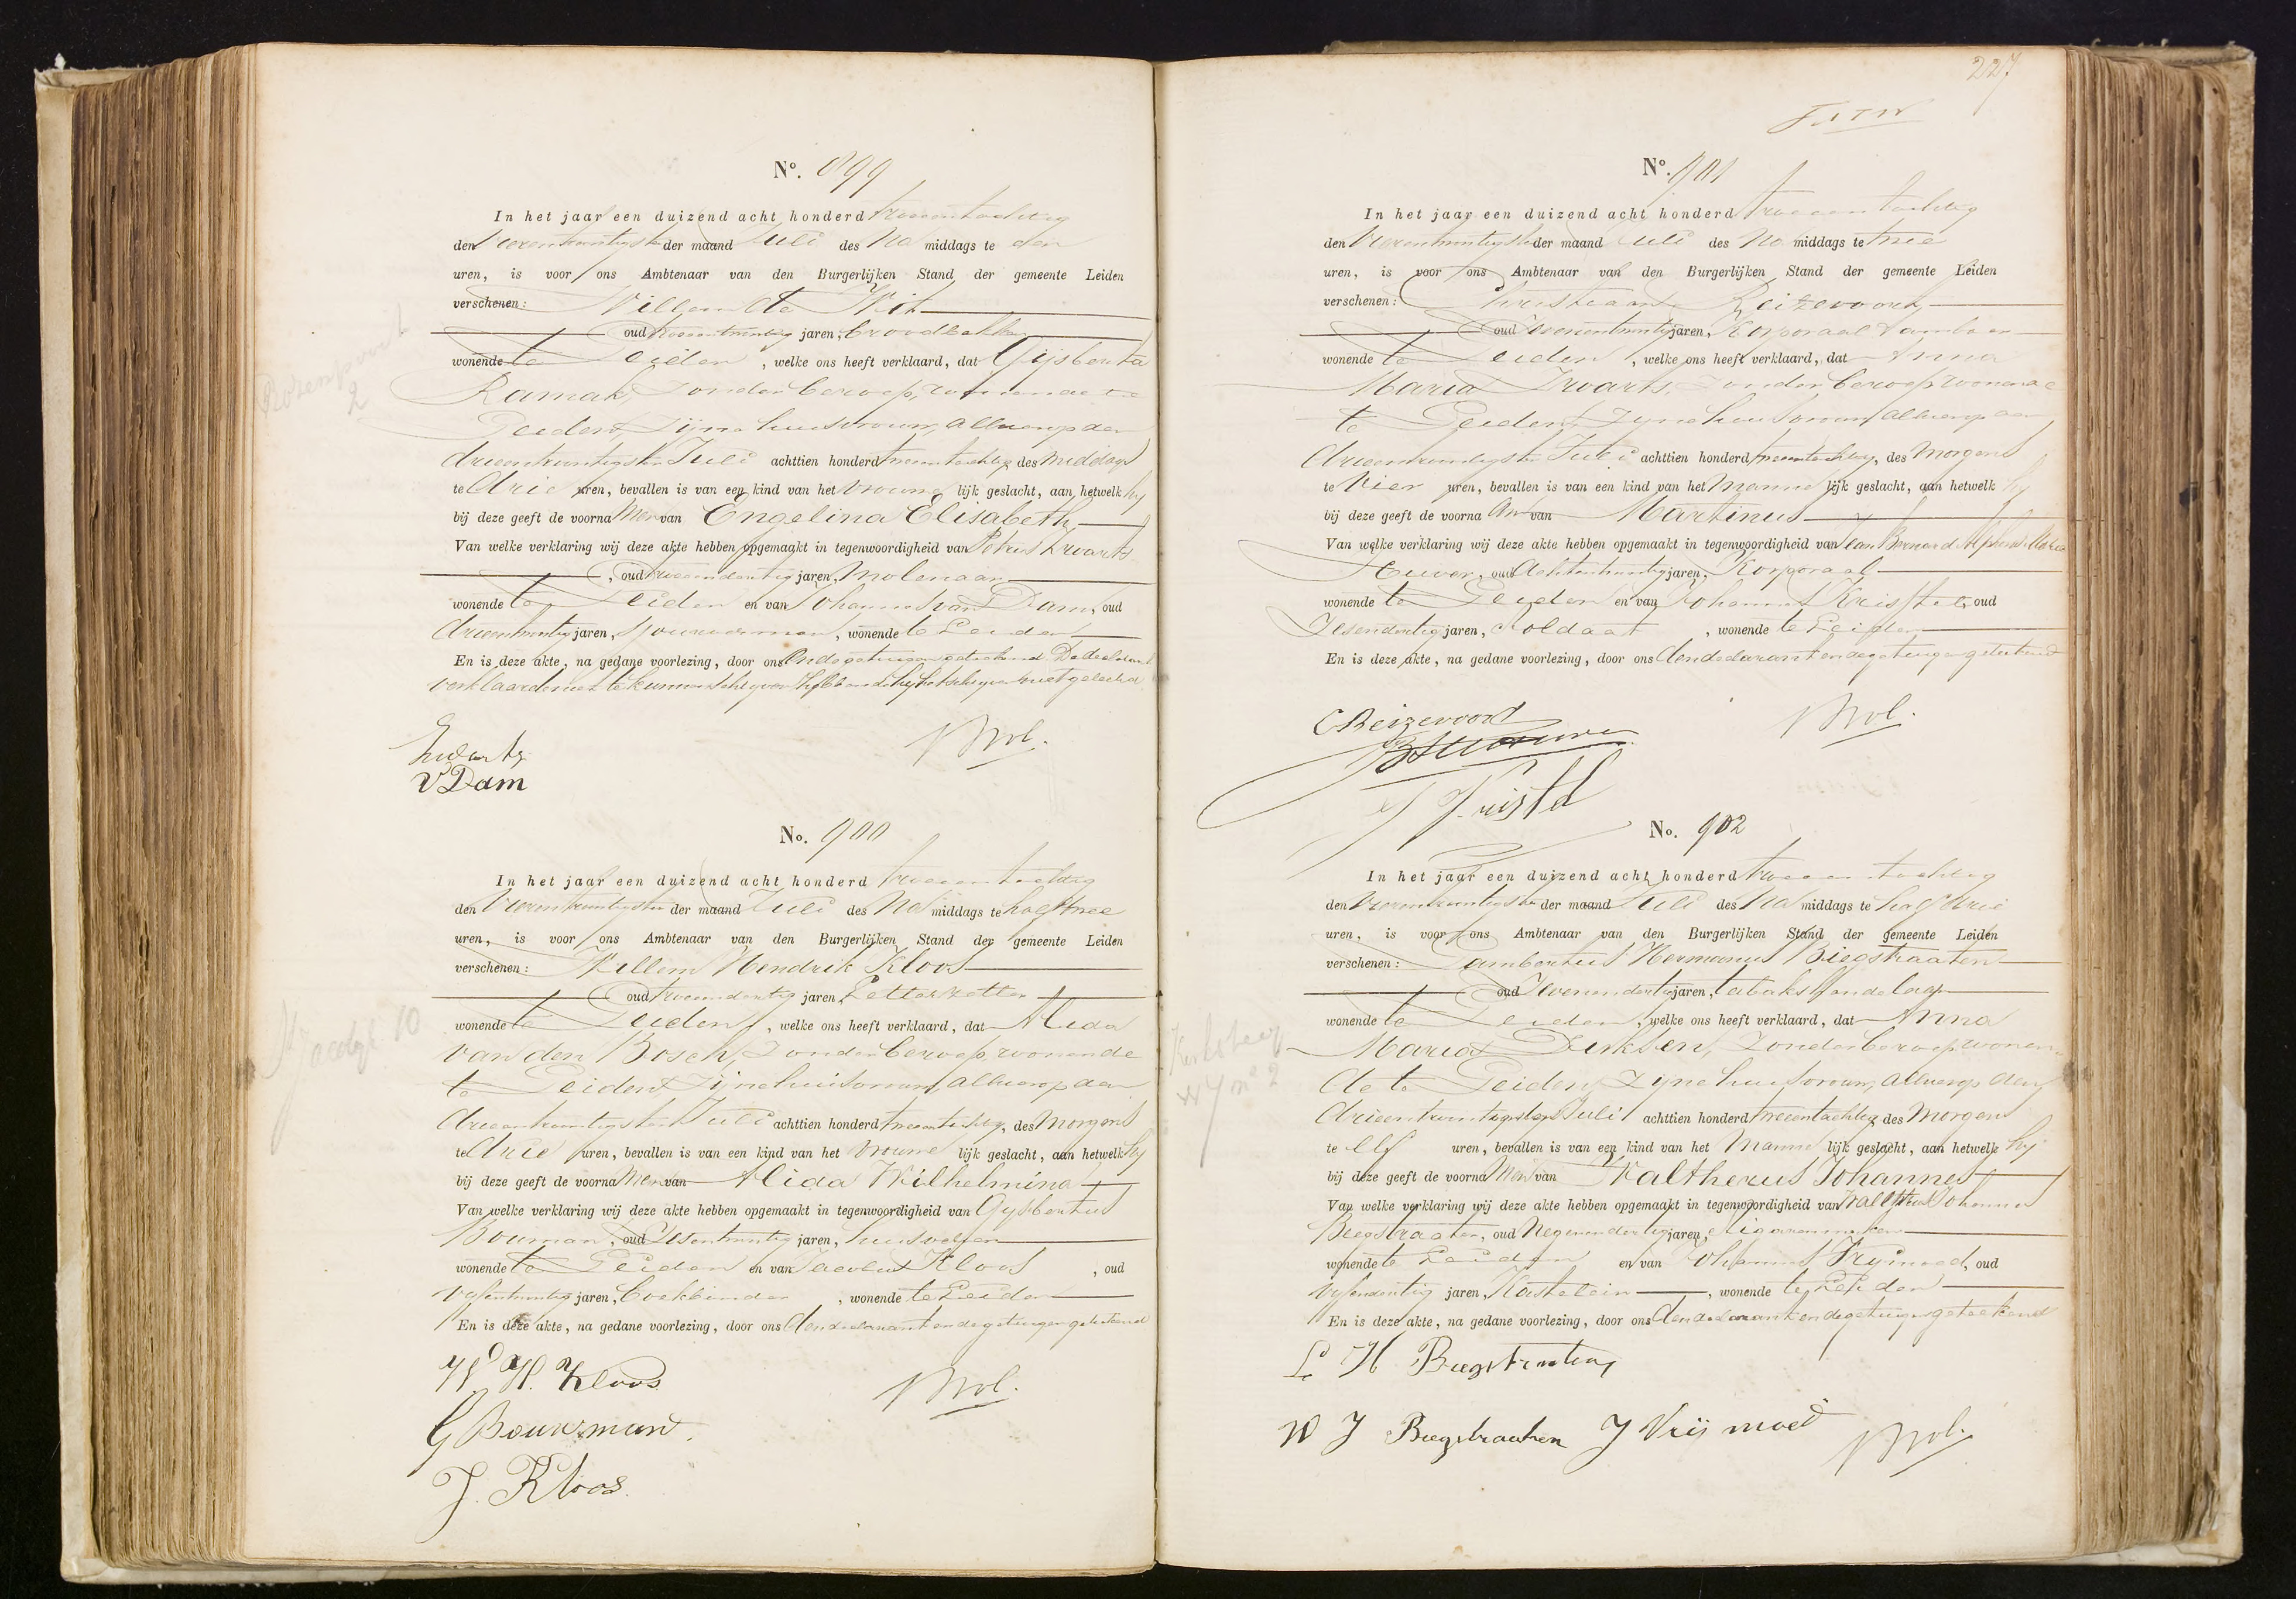 No. 899
In het jaar een duizend acht honderd tweeentachtig
den Vierentwintigste der maand Juli des Na middags te een
uren, is voor ons Ambtenaar van den Burgerlijken Stand der gemeente Leiden
verschenen: Willem de Wit
oud tweeentwintig jaren, broodbakker
wonende te Leiden, welke ons heeft verklaard, dat Gijsberta
Raman, zonder beroep, wonende te
Leiden, zijne huisvrouw, alhier op den
drieentwintigsten Juli achttien honderd tweentachtig des middags
te drie uren, bevallen is van een kind van het vrouwe lijk geslacht, aan hetwelk hij
bij deze geeft de voorna men van Engelina Elisabeth
Van welke verklaring wij deze akte hebben opgemaakt in tegenwoordigheid van Petrus Zwarts
, oud tweeendertig jaren, Molenaar
wonende te Leiden en van Johannes van Dam, oud
drieentwintig jaren, Sjouwerman, wonende te Leiden
En is deze akte, na gedane voorlezing, door ons en de getuigen geteekend De declarant
verklaarde niet te kunnen schrijven
Rozenpoort
2
Zwarts
v Dam
Bol.
No. 900
In het jaar een duizend acht honderd tweeentachtig
den Vierentwintigsten der maand Juli des Na middags te half twee
uren, is voor ons Ambtenaar van den Burgerlijken Stand der gemeente Leiden
verschenen: Willem Hendrik Kloos
oud tweeendertig jaren, Letterzetter
wonende te Leiden, welke ons heeft verklaard, dat Alida
van den Bosch, zonder beroep, wonende
te Leiden, zijne huisvrouw, alhier op den
drieentwintigsten Juli achttien honderd tweentachtig, des Morgens
te drie uren, bevallen is van een kind van het vrouwe lijk geslacht, aan hetwelk hij
bij deze geeft de voorna men van Alida Wilhelmina
Van welke verklaring wij deze akte hebben opgemaakt in tegenwoordigheid van Gijsbertus
Bouman, oud Zesentwintig jaren,
wonende te Leiden en van Jacobus Kloos, oud
Vijfentwintig jaren, boekbinder, wonende te Leiden
En is deze akte, na gedane voorlezing, door ons den declarant en de getuigen geteekend
10
W. H. Kloos
G Bouwman
J. Kloos.
Bol.
227
No. 901
In het jaar een duizend acht honderd tweeentachtig
den Vierentwintigste der maand Juli des Na middags te twee
uren, is voor ons Ambtenaar van den Burgerlijken Stand der gemeente Leiden
verschenen: Christiaan Reizevoort,
oud Zevenentwintig jaren, Korporaal Tamboer
wonende te Leiden, welke ons heeft verklaard, dat Anna
Maria Zwarts, zonder beroep, wonende
te Leiden, zijne huisvrouw, alhier op den
drieentwintigsten Juli achttien honderd tweentachtig, des Morgens
te Vier uren, bevallen is van een kind van het Manne lijk geslacht, aan hetwelk hij
bij deze geeft de voorna am van Martinus
Van welke verklaring wij deze akte hebben opgemaakt in tegenwoordigheid van Jean Bernard Alphons Maria
, oud Achtentwintig jaren, Korporaal
wonende te Leiden en van Johannes Kristel, oud
Zesendertig jaren, Soldaat, wonende te Leiden
En is deze akte, na gedane voorlezing, door ons den declarant en de getuigen geteekend
C Reizevoort
Bol.
No. 902
In het jaar een duizend acht honderd tweeentachtig
den Vierentwintigsten der maand Juli des Na middags te half drie
uren, is voor ons Ambtenaar van den Burgerlijken Stand der gemeente Leiden
verschenen: Lambertus Hermanus Biegstraaten
oud Zevenendertig jaren, tabakshandelaar
wonende te Leiden, welke ons heeft verklaard, dat Anna
Maria Derksen, zonder beroep, wonen
de te Leiden, zijne huisvrouw, alhier op den
drieentwintigsten Juli achttien honderd tweeentachtig des Morgens
te elf uren, bevallen is van een kind van het Manne lijk geslacht, aan hetwelk hij
bij deze geeft de voorna men van Waltherus Johannes
Van welke verklaring wij deze akte hebben opgemaakt in tegenwoordigheid van Waltherus Johannes
Biegstraaten, oud Negenendertig jaren, sigarenmaker
wonende te Leiden en van Johannes Vrijmoed, oud
Vijfendertig jaren, Kastelein, wonende te Leiden
En is deze akte, na gedane voorlezing, door ons den declarant en de getuigen geteekend
Kerksteeg
w 7 no 2
L H Biegstraaten
W J Biegstraaten J Vrijmoed
Bol.